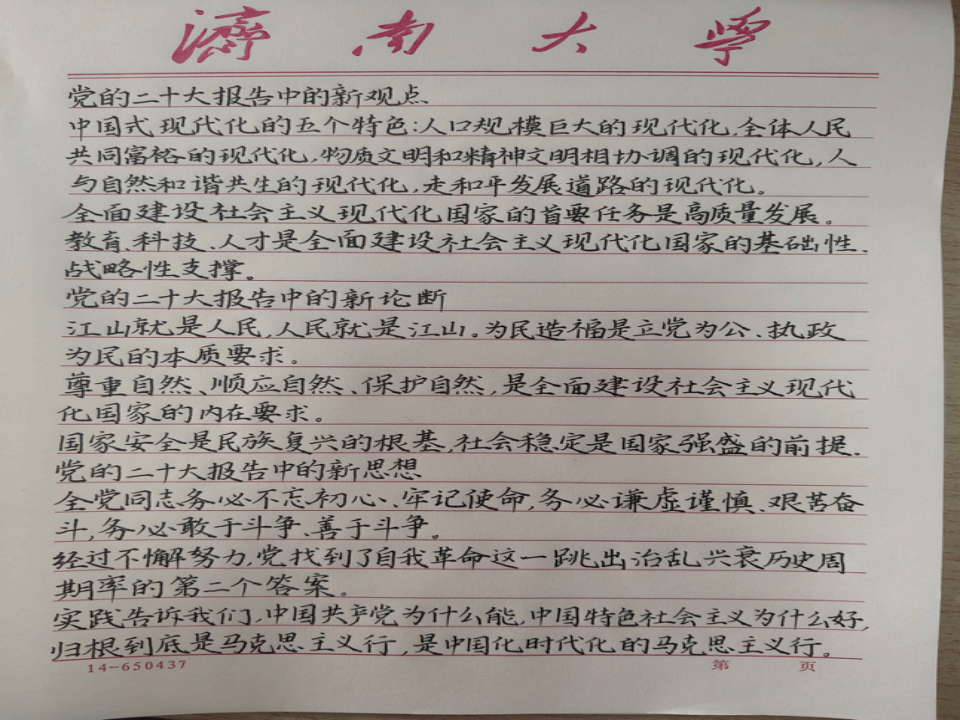 濟南大學
党的二十大报告中的新观点
中国式现代化的五个特色:人口规模巨大的现代化,全体人民
共同富裕的现代化,物质文明和精神文明相协调的现代化,人
与自然和谐共生的现代化,走和平发展道路的现代化。
全面建设社会主义现代化国家的首要任务是高质量发展。
教育、科技、人才是全面建设社会主义现代化国家的基础性、
战略性支撑。
党的二十大报告中的新论断
江山就是人民,人民就是江山。为民造福是立党为公、执政
为民的本质要求。
尊重自然、顺应自然、保护自然,是全面建设社会主义现代
化国家的内在要求。
国家安全是民族复兴的根基,社会稳定是国家强盛的前提.
党的二十大报告中的新思想
全党同志务必不忘初心、牢记使命,务必谦虚谨慎、艰苦奋
斗,务必敢于斗争、善于斗争。
经过不懈努力,党找到了自我革命这一跳出治乱兴衰历史周
期率的第二个答案。
实践告诉我们,中国共产党为什么能,中国特色社会主义为什么好,
归根到底是马克思主义行,是中国化时代化的马克思主义行。
14-650437 第 页